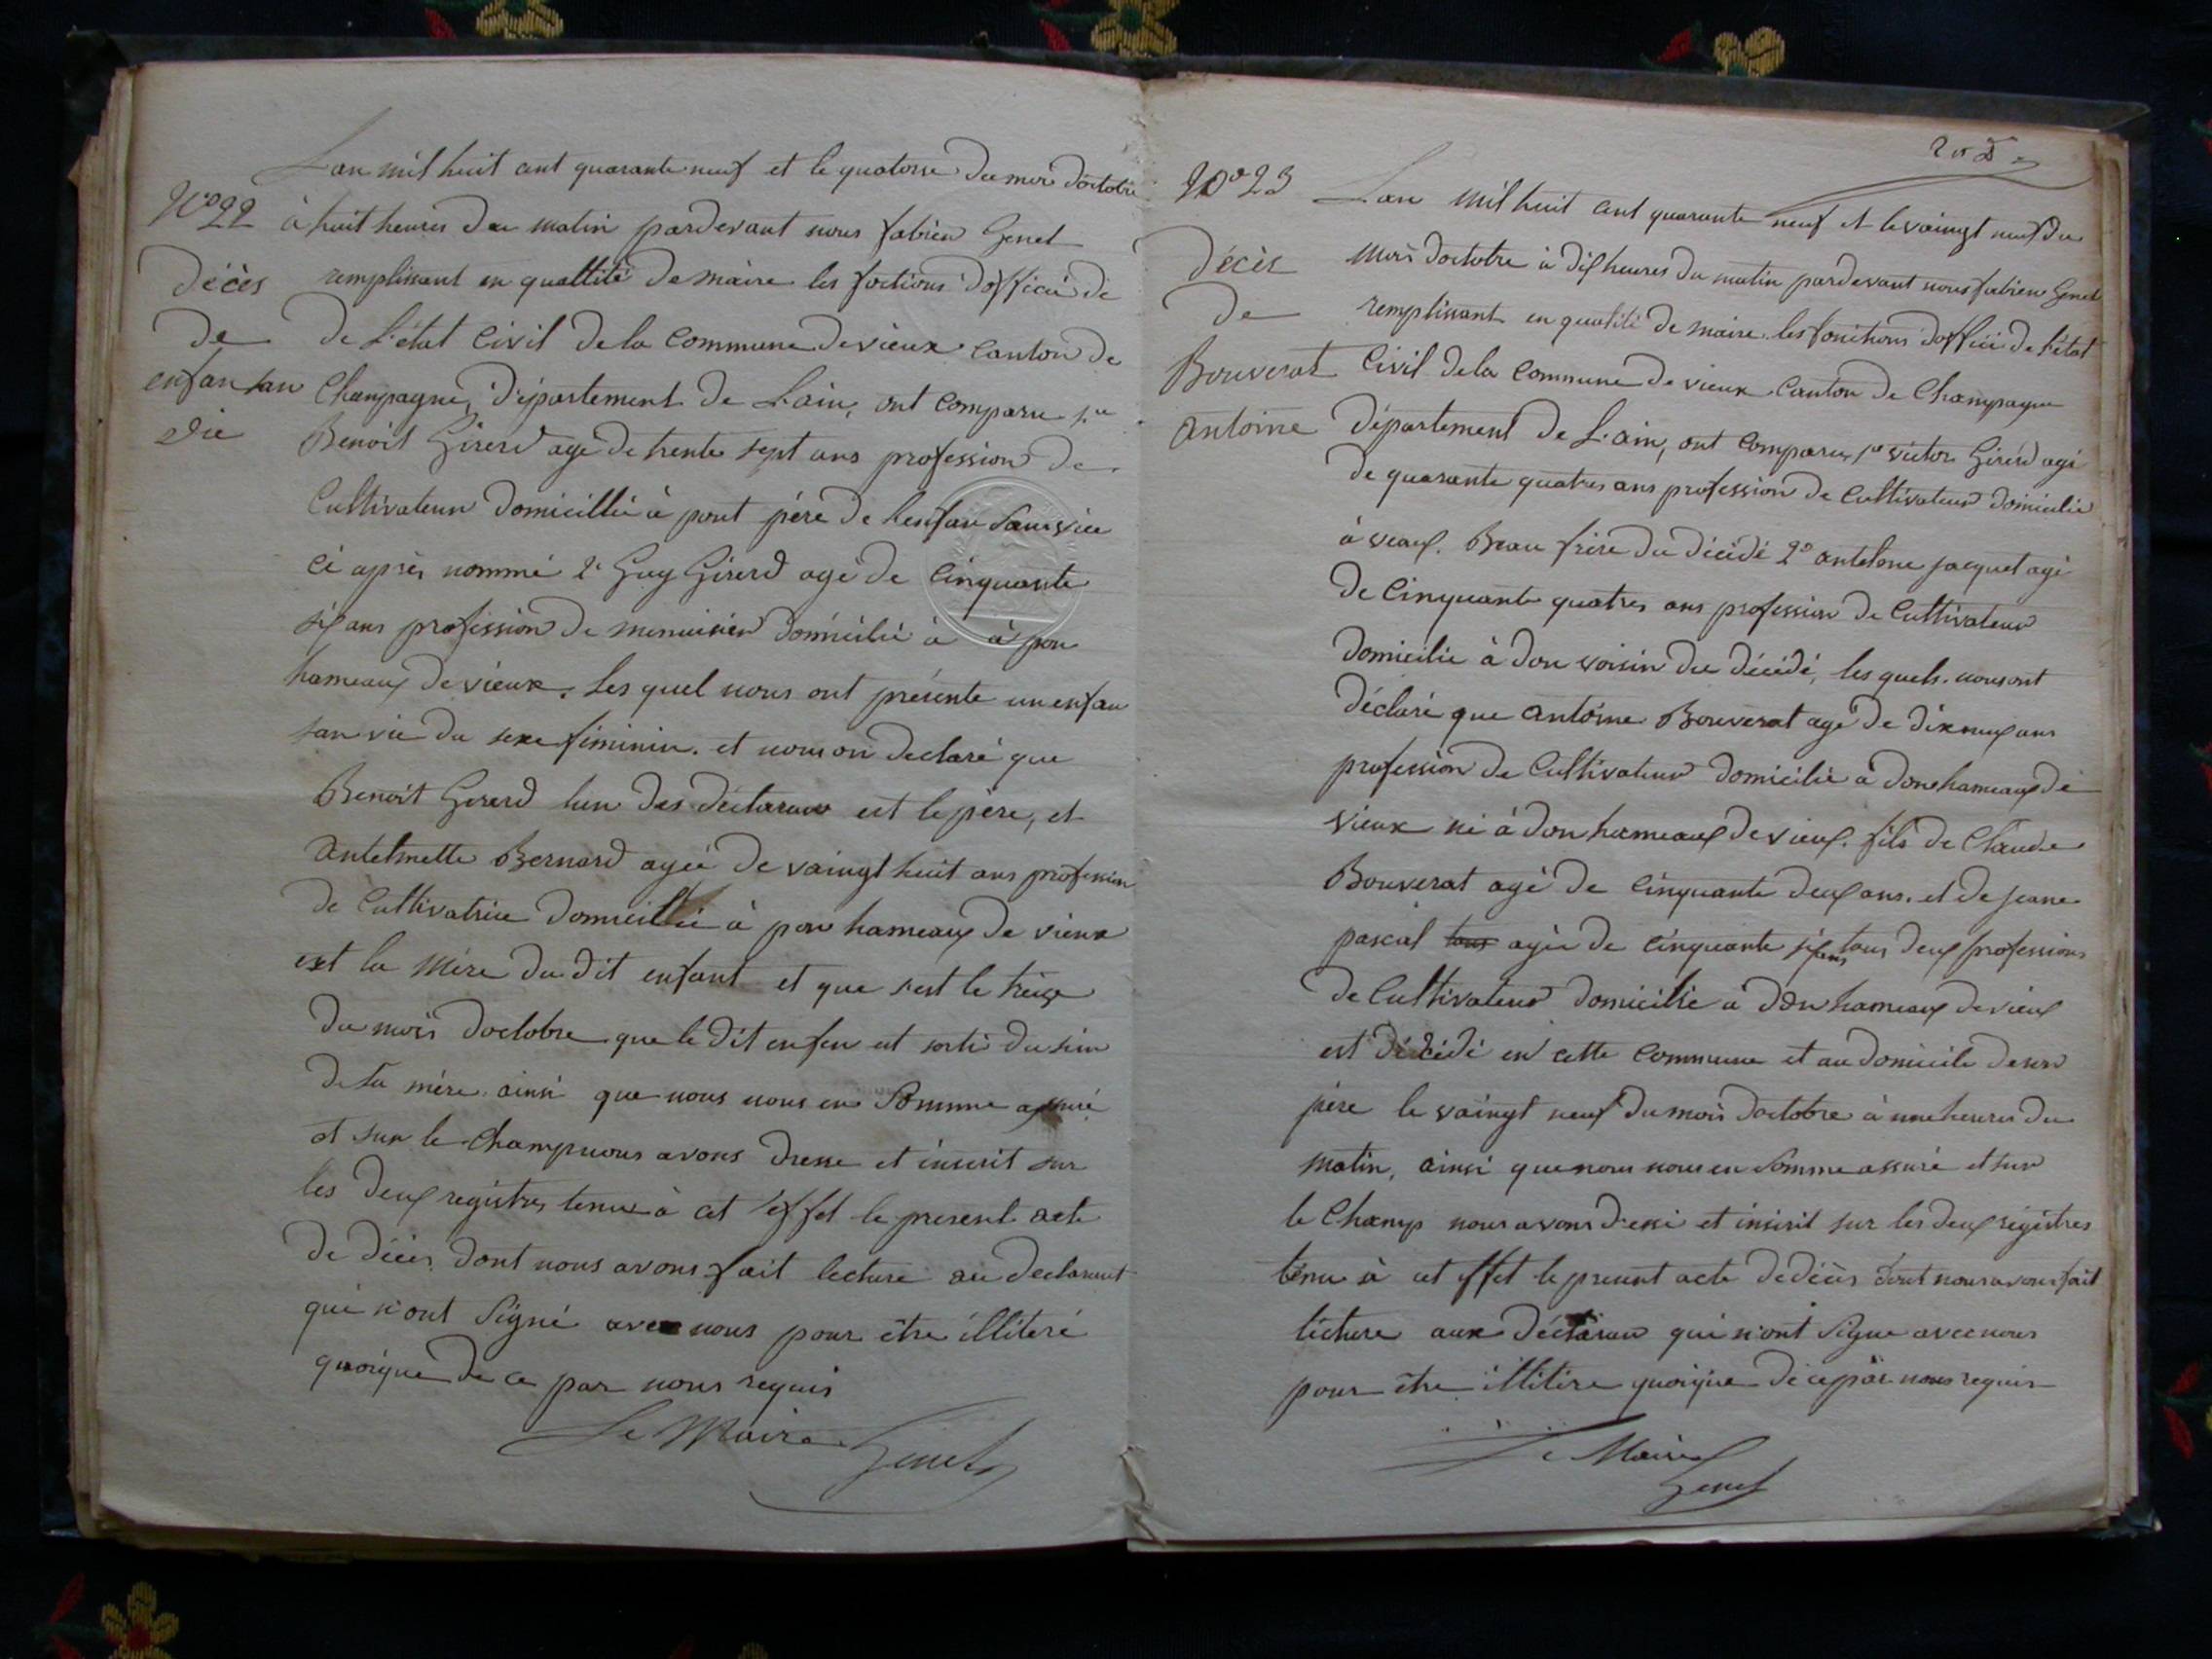 Lan mil huit cent quarante neuf et le quatorse du moi doctobre
N° 22
à huit heures du matin pardevant nous fabien Genet
décès
remplissant en quallité de maire les foctions dofficié de
de
de L'état Civil de la Commune de vieux canton de
enfan san
Champagne, Département de L'ain, ont comparu 1er
vie
Benoit Girerd agé de trente sept ans profession de
Cultivateur domicillié à pont père de l'enfan sans vie
ci après nommé 2e Guy Girerd agé de Cinquante
six ans profession de menuisier domicilié à à pon
hameaux de vieux. Les quel nous ont présente un enfan
san vie du sexe féminin. et nous on declaré que
Benoit Girerd lun des déclarans est le père, et
Antelmette Bernard agée de vaingt huit ans profession
de Cultivatrice domicillié à pon hameaux de vieux
est la Mère du dit enfant et que s'est le treize
du mois doctobre que le dit enfen est sorti du sein
de sa mère. ainsi que nous nous en Somme assuré
et sur le champ nous avons dresse et inscrit sur
les deux registres tenu à cet effet le present acte
de décès dont nous avons fait lecture au declarant
qui n'ont Signé avec nous pour être illiteré
quoique de ce par nous requis
Le Maire Genet
N° 23
Lan mil huit cent quarante neuf et le vaingt neuf du
Décès
Mois doctobre à dix heures du matin pardevant nous fabien Genet
De
remplissant en qualité de maire les fonctions dofficié de l'état
Bouverat
Civil de la Commune de vieux Canton de Champagne
Antoine
Département de L'ain, ont comparu 1er victor Girerd agé
de quarante quatres ans profession de Cultivateur domicilié
à veaux. Beau frère du décédé 2° antelme jacquet agé
de Cinquante quatres ans profession de Cultivateur
domicilié à don voisin du décédé, les quels nous ont
déclaré que antoine Bouverat agé de dix neuf ans
profession de Cultivateur domicilié à don hameaux de
vieux né à don hameaux de vieux. fils de Claude
Bouverat agé de Cinquante deux ans. et de jeane
pascal tous agée de cinquante six ans tous deux professions
de Cultivateur domicillié à don hameaux de vieux
est décédé en cette Commune et au domicile de son
père le vaingt neuf du mois doctobre à une heures du
matin, ainsi que nous nous en Somme assuré et sur
le Champ nous avons dressé et inscrit sur les deux régistres
tenu à cet effet le present acte de décès dont nous avons fait
lecture aux déclaran qui n'ont Signe avec nous
pour être illitére quoique de ce par nous requis
Le Maire
Genet